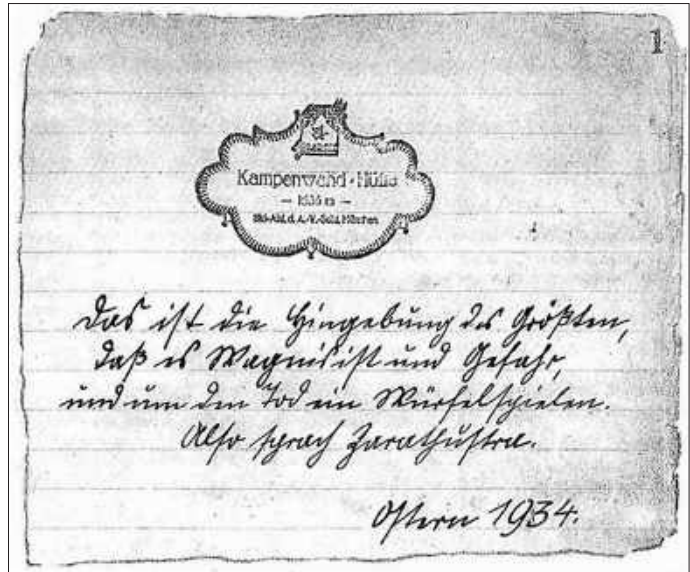 1
Kampenwand-Hütte
Das ist die Hingebung des Größten,
daß es Wagnis ist und Gefahr,
und um den Tod ein Würfelspielen.
Also sprach Zarathustra.
Ostern 1934.